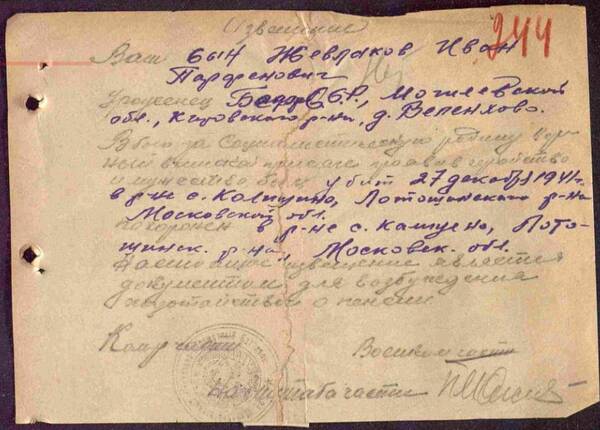 Извещение
244
Ваш сын Жевлаков Иван
Парфенович
Уроженец БССР, Могилевской
обл., р-на, д.
В бою за социалистическую родину, вер-
ный воинской присяге, проявив геройство
и мужество был убит 27 декабря 1941г.
в р-не с. Калицино, Лотошинского р-на
Московской обл.
похоронен в р-не с. Лото-
шинск. р-на, Московск. обл.
Настоящее извещение является
документом для возбуждения
ходатайства о пенсии
Ком. части
Военком части
Нач. штаба части